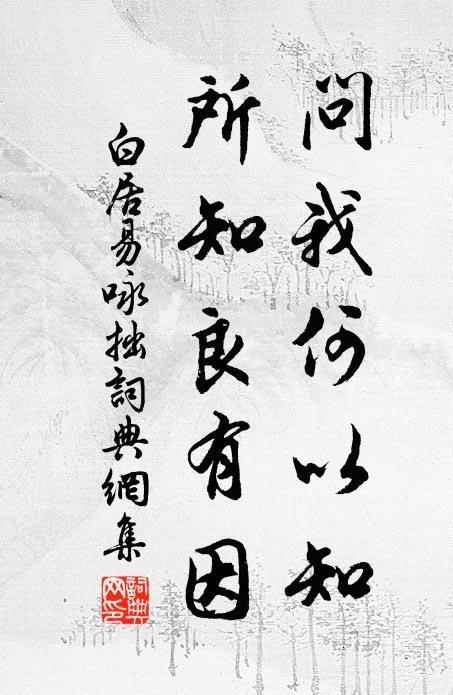 問我何以知
所知良有因
白居易咏拙詞典網集
詞典
网印